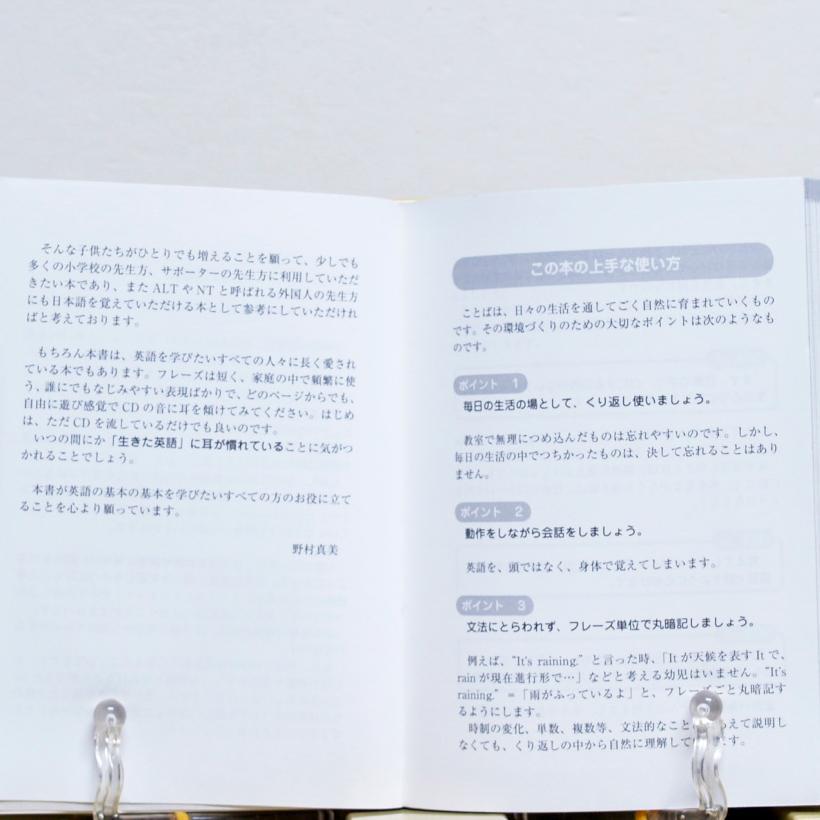 そんな子供たちがひとりでも増えることを願って、少しでも
多くの小学校の先生方、サポーターの先生方に利用していただ
きたい本であり、また ALT や NT と呼ばれる外国人の先生方
にも日本語を覚えていただける本として参考にしていただけれ
ばと考えております。
もちろん本書は、英語を学びたいすべての人々に長く愛され
ている本でもあります。フレーズは短く、家庭の中で頻繁に使
う、誰にでもなじみやすい表現ばかりで、どのページからでも、
自由に遊び感覚で CD の音に耳を傾けてみてください。はじめ
は、ただ CD を流しているだけでも良いのです。
いつの間にか「生きた英語」に耳が慣れていることに気がつ
かれることでしょう。
本書が英語の基本の基本を学びたいすべての方のお役に立て
ることを心より願っています。
野村真美
この本の上手な使い方
ことばは、日々の生活を通してごく自然に育まれていくもの
です。その環境づくりのための大切なポイントは次のようなも
のです。
ポイント 1
毎日の生活の場として、くり返し使いましょう。
教室で無理につめ込んだものは忘れやすいのです。しかし、
毎日の生活の中でつちかったものは、決して忘れることはあり
ません。
ポイント 2
動作をしながら会話をしましょう。
英語を、頭ではなく、身体で覚えてしまいます。
ポイント 3
文法にとらわれず、フレーズ単位で丸暗記しましょう。
例えば、"It's raining." と言った時、「It が天候を表す It で、
rain が現在進行形で…」などと考える幼児はいません。"It's
raining." =「雨がふっているよ」と、フレーズごと丸暗記す
るようにします。
時制の変化、単数、複数等、文法的なこと えて説明し
なくても、くり返しの中から自然に理解して す。